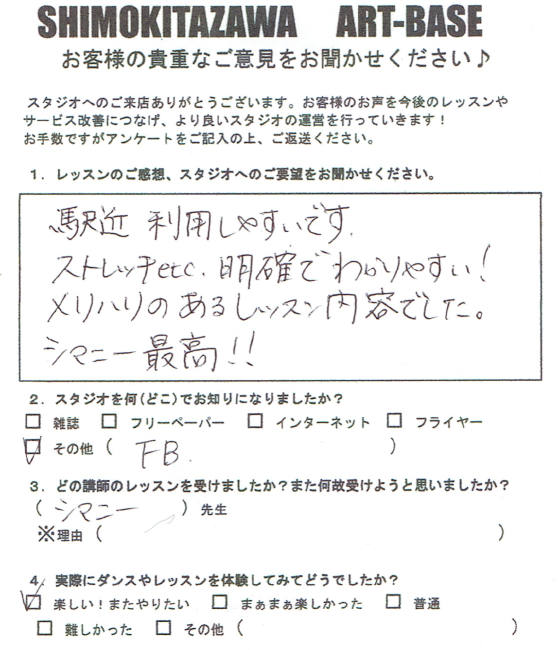 SHIMOKITAZAWA ART-BASE
お客様の貴重なご意見をお聞かせください♪
スタジオへのご来店ありがとうございます。お客様のお声を今後のレッスンや
サービス改善につなげ、より良いスタジオの運営を行っていきます！
お手数ですがアンケートをご記入の上、ご返送ください。
1．レッスンのご感想、スタジオへのご要望をお聞かせください。
駅近 利用しやすいです.
ストレッチetc. 明確でわかりやすい！
メリハリのあるレッスン内容でした。
シマニー最高！！
2．スタジオを何(どこ)でお知りになりましたか？
□ 雑誌 □ フリーペーパー □ インターネット □ フライヤー
☑ その他 ( FB. )
3．どの講師のレッスンを受けましたか？また何故受けようと思いましたか？
( シマニー ) 先生
※理由 ( )
4．実際にダンスやレッスンを体験してみてどうでしたか？
☑ 楽しい！またやりたい □ まぁまぁ楽しかった □ 普通
□ 難しかった □ その他 ( )